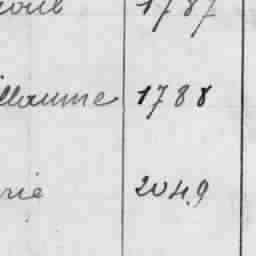 1787
illaume 1788
rie 2049